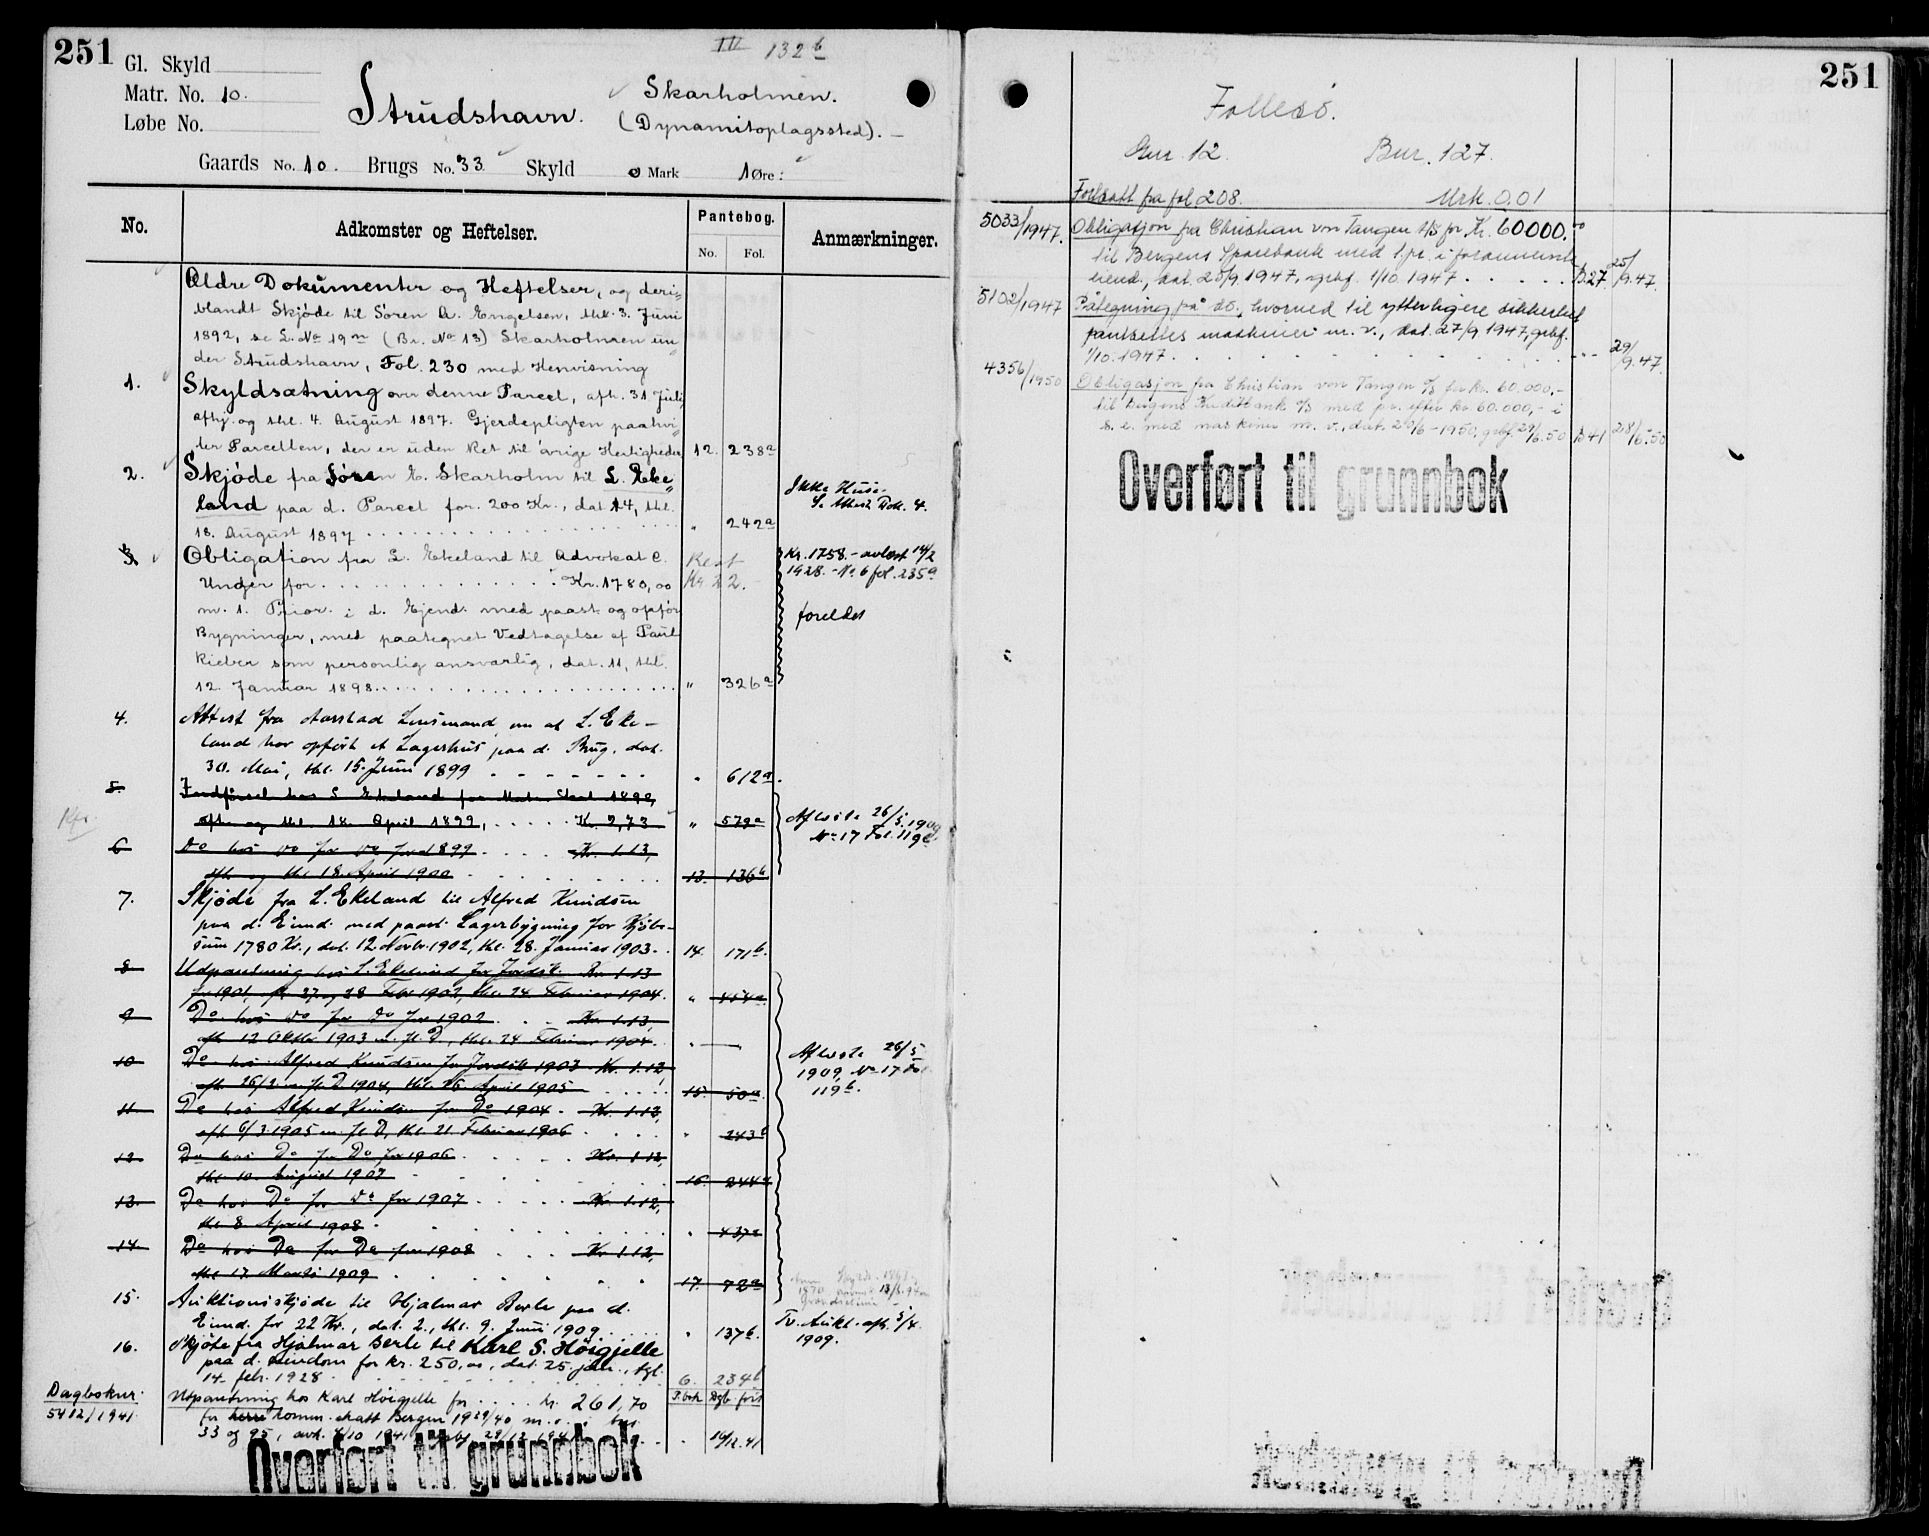 251
Gl. Skyld
Matr. No. 10.
Løbe No.
Strudshavn.
132 b
Skarholmen.
(Dynamitoplagssted). –
Gaards No. 10. Brugs No. 33 Skyld 0 Mark 1 Øre:
No.
Adkomster og Heftelser.
Pantebog.
No. Fol.
Anmærkninger.
Ældre Dokumenter og Heftelser, og deri-
blandt Skjøde til Søren A. Engelsen, thl. 3. Juni
1892, se L. No 19 m (Br. No 13) Skarholmen un-
der Strudshavn, Fol. 230 med Henvisning
1. Skyldsætning over denne Parcel, afh. 31 Juli,
afhj. og thl. 4. August 1897. Gjerdepligten paahvi-
ler Parcellen, der er uden Ret til øvrige Herligheder 12. 238 a
2. Skjøde fra Søren E. Skarholm til L. Eke-
land paa d. Parcel for 200 Kr., dat. 14, thl.
18. August 1897 " 242 a
Ikke Huse.
S. Attest Dok. 4.
3. Obligation fra L. Ekeland til Advokat C.
Unger for Kr. 1780,00
Rest
Kr. 22.-
m. 1. Prior. i d. Ejend. med paast. og opfør.
Bygninger, med paategnet Vedtagelse af Paul
Rieber som personlig ansvarlig, dat. 11, thl.
12. Januar 1898 " 326 a
Kr. 1758.- avløst 14/2
1928. - No 6 fol. 235 a
foreldet
4. Attest fra Aarstad Lensmand om at L. Eke-
land har opført et Lagerhus paa d. Brug, dat.
30. Mai, thl. 15. Juni 1899 " 612 a.
5. Udpantning hos L. Ekeland for Matr. Skat 1898,
afh. og thl. 18. April 1899, Kr. 2,73 " 579 a
6 Do hos Do for Do for 1899 Kr. 1.13,
afh. og thl. 18. April 1900 13. 136 b
Afløste 26/5 1909
No 17 Fol. 119 b
7. Skjøde fra L. Ekeland til Alfred Knudsen
paa d. Eiend. med paast. Lagerbygning for Kjøbe-
sum 1780 Kr., dat. 12. Novbr. 1902, thl. 28. Januar 1903. 14. 171 b.
8 Udpantning hos L. Ekeland for Jordsk. Kr. 1.13
for 1901, afh. 27 og 28 Febr 1902, thl. 24. Februar 1904. " 454 a.
9 Do hos Do for Do for 1902 Kr. 1.13,
afh. 12 Oktbr. 1903 m. fl. D., thl. 24 Februar 1904. "
10 Do hos Alfred Knudsen for Jordsk 1903 Kr. 1.12,
afh. 26/2 m. fl. D 1904, thl. 26 April 1905 15. 50 a.
11 Do hos Alfred Knudsen for Do 1904. Kr. 1.12,
afh. 6/3 1905 m. fl. D, thl. 21. Februar 1906 " 243 b
12. Do hos Do for Do for 1906 Kr. 1.12,
thl. 10. August 1907 16. 244 a
13. Do hos Do for Do for 1907 Kr. 1.12,
thl. 8. April 1908 " 437 a
14. Do hos Do for Do for 1908 Kr. 1.12,
thl. 17. Marts 1909 17. 72 a
Afløste 26/5
1909, No 17 Fol
119 b.
15. Auktionsskjøde til Hjalmar Berle paa d.
Eiend. for 22 Kr., dat. 2., thl. 9. Juni 1909 " 137 b.
Tv. Aukt. afh.
1909.
16. Skjøte fra Hjalmar Berle til Karl S. Höigjelle
paa d. eiendom for kr. 250,00, dat. 25. jan., tgl.
14. febr. 1928 6. 234 b
P.bok Dgb. ført
Dagboknr.
5412/1941.
Utpantning hos Karl Höigjelle for kr. 261,70
for komm. skatt Bergen 1939/40 m. v. i bnr.
33 og 95, avh. 4/10 1941 10/12.41
Overført til grunnbok
251
Follesö.
Gnr. 12. Bnr. 127.
Fortsatt fra fol. 208. Mrk. 0.01
5033/1947. Obligasjon fra Christian von Tangen A/S for Kr. 60000.00
til Bergens Sparebank med 1. pr. i forannevnte
eiend., dat. 25/9 1947, grbf. 1/10 1947 B.27 25/9.47.
5102/1947 Påtegning på do., hvorved til ytterligere sikkerhet
pantsettes maskiner m. v., dat. 27/9 1947, grbf.
1/10. 1947 29/9.47.
4356/1950 Obligasjon fra Christian von Tangen A/S for kr. 60.000,-
til Bergens Kreditbank A/S med pr. efter kr. 60.000,- i
s. e. med maskiner m. v., dat. 20/6-1950, grbf. 29/6.50 B41 28/6.50
Overført til grunnbok